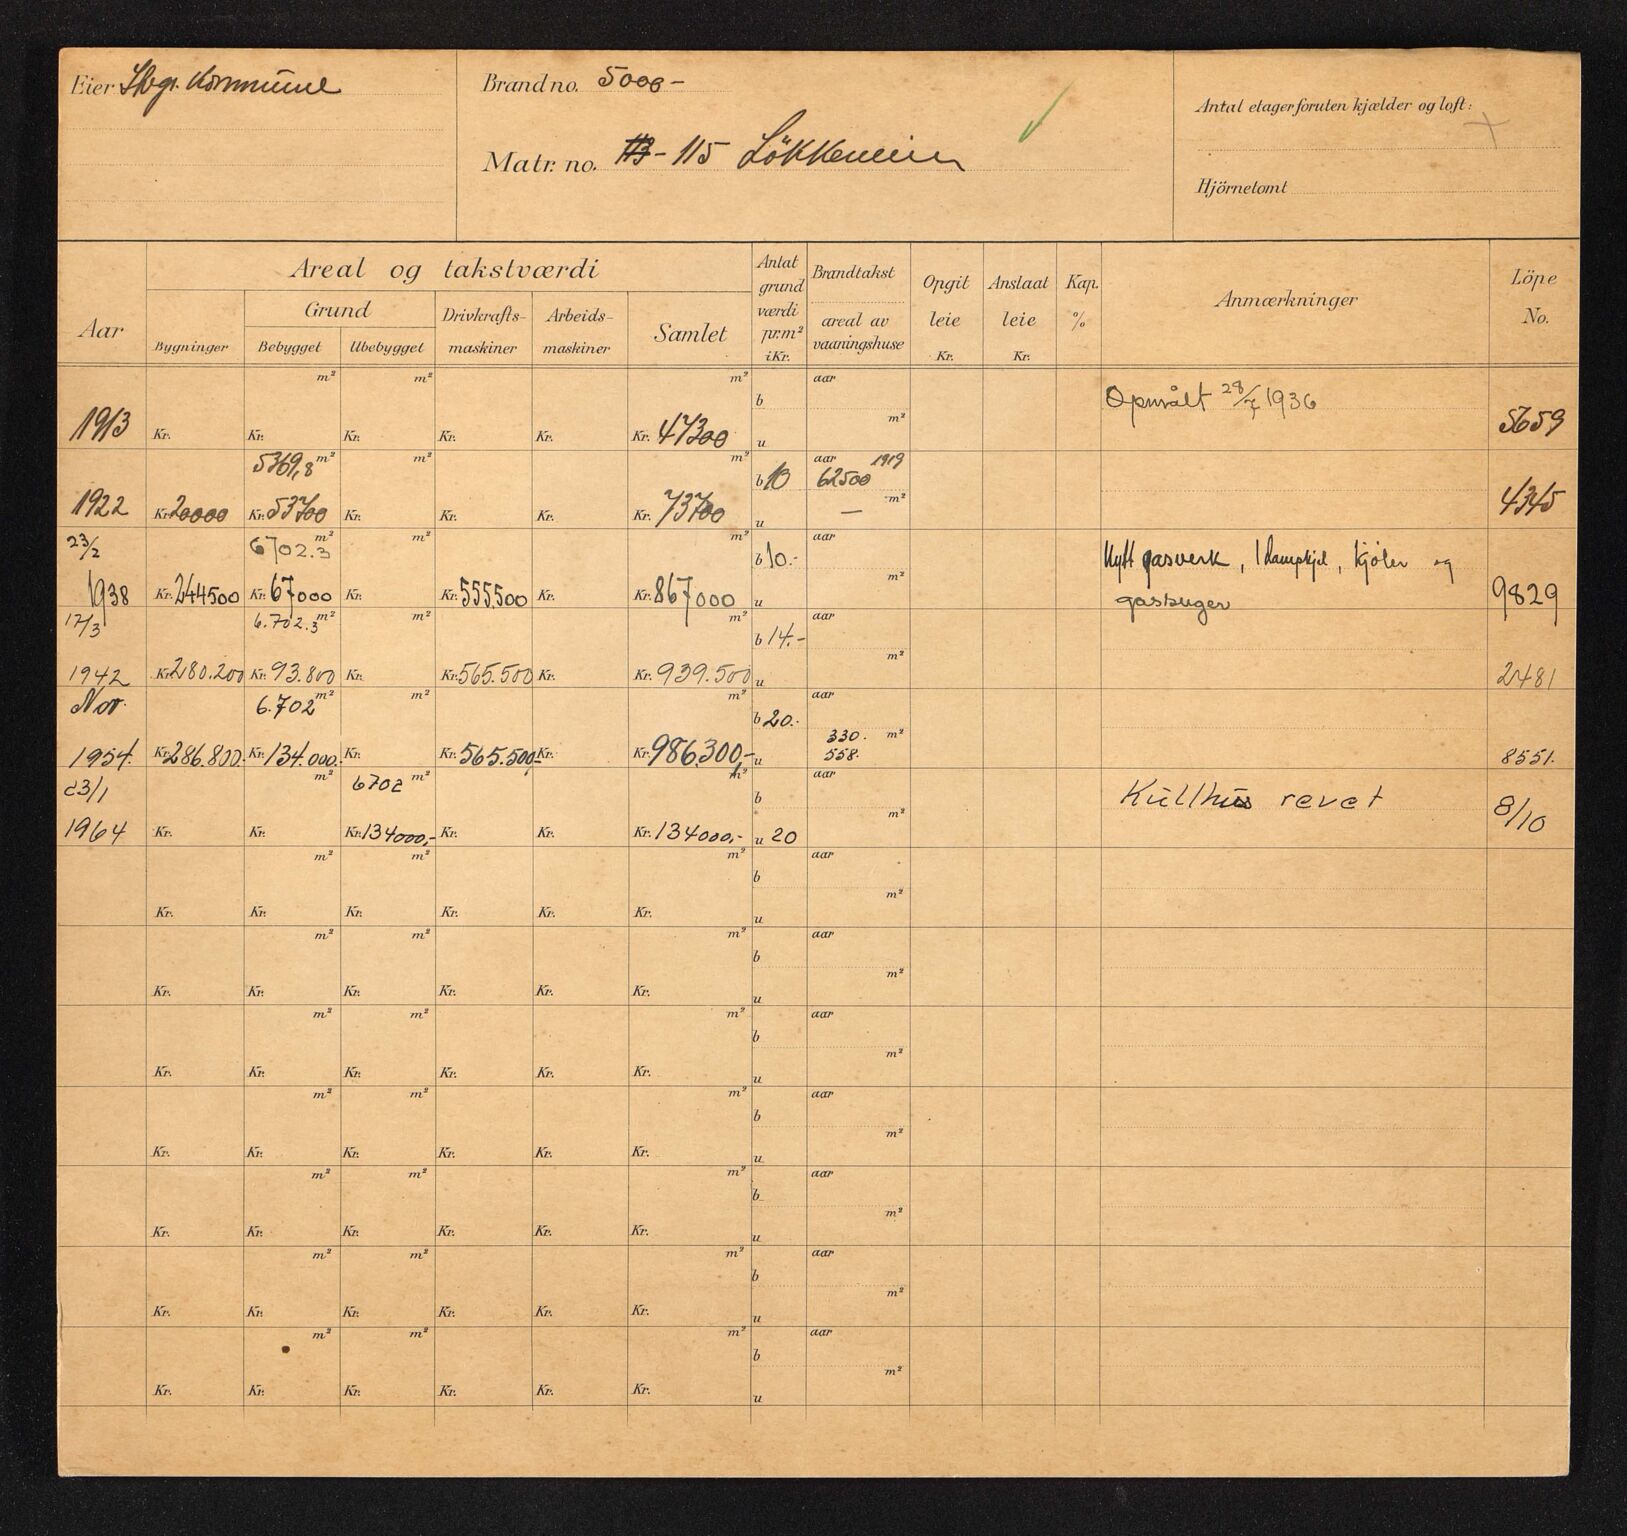 Eier Stvgr. Kommune
Brandno. 5006 -
Matr. no. 113 - 115 Lökkeveien
Antal etager foruten kjælder og loft:
Hjörnetomt
Aar
Areal og takstværdi
Grund
Bygninger Bebygget Ubebygget Drivkrafts-maskiner Arbeids-maskiner Samlet
Antat grund værdi pr.m² i Kr.
Brandtakst areal av vaaningshuse
Opgit leie Kr.
Anslaat leie Kr.
Kap. %
Anmærkninger
Löpe No.
m² m² m² aar
b Opmålt 28/7 1936
1913 Kr. Kr. Kr. Kr. Kr. Kr. 47300 u m² 5659
5369,8 m² m² m² b 10 aar 1919 62500
1922 Kr. 20000 Kr. 53700 Kr. Kr. Kr. Kr. 73700 u m² — 4345
23/2 6702.3 m² m² m² b 10.- aar Nytt gasverk, 1 dampkjel, kjöler og
1938 Kr. 244500 Kr. 67000 Kr. Kr. 555.500 Kr. Kr. 867000 u m² gassuger 9829
17/3 6.702.3 m² m² m² b 14.- aar
1942 Kr. 280.200 Kr. 93.800 Kr. Kr. 565.500 Kr. Kr. 939.500 u m² 2481
Nov. 6.702 m² m² m² b 20.- aar
1954. Kr. 286.800.- Kr. 134.000.- Kr. Kr. 565.500,- Kr. Kr. 986.300,- u 330. m² 558. 8551.
23/1 m² 6702 m² m² b aar Kullhus revet
1964 Kr. Kr. Kr. 134000,- Kr. Kr. Kr. 134000,- u 20 m² 8/10
m² m² m² b aar
Kr. Kr. Kr. Kr. Kr. Kr. u m²
m² m² m² b aar
Kr. Kr. Kr. Kr. Kr. Kr. u m²
m² m² m² b aar
Kr. Kr. Kr. Kr. Kr. Kr. u m²
m² m² m² b aar
Kr. Kr. Kr. Kr. Kr. Kr. u m²
m² m² m² b aar
Kr. Kr. Kr. Kr. Kr. Kr. u m²
m² m² m² b aar
Kr. Kr. Kr. Kr. Kr. Kr. u m²
m² m² m² b aar
Kr. Kr. Kr. Kr. Kr. Kr. u m²